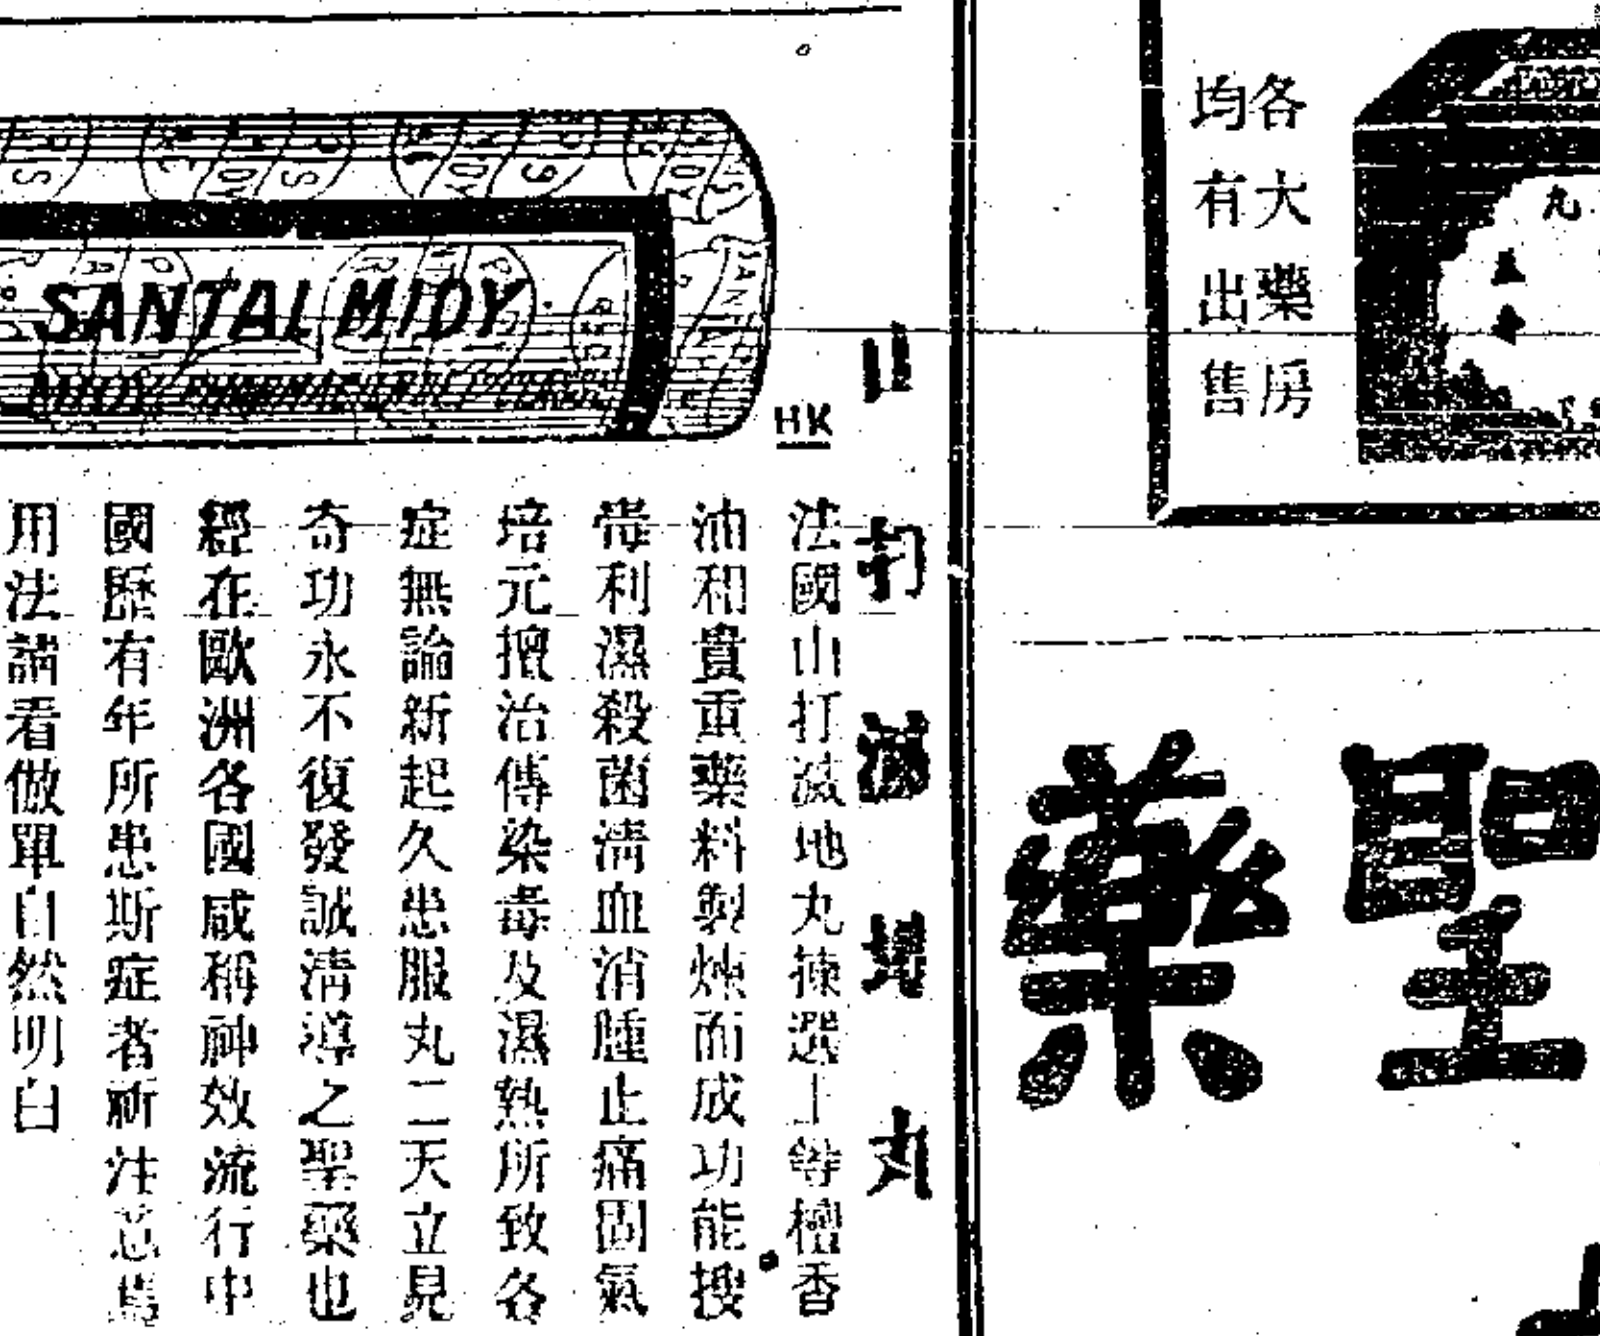 各大藥房
均有出售
聖藥
山打滅地丸
法國山打滅地丸揀選上等檀香
油和貴重藥料製煉而成功能搜
毒利濕殺菌清血消腫止痛固氣
培元擅治傳染毒及濕熱所致各
症無論新起久患服丸二天立見
奇功永不復發誠淸導之聖藥也
經在歐洲各國咸稱神效流行中
國歷有年所患斯症者祈注意焉
用法請看倣單自然明白
SANTAL MIDY
HK